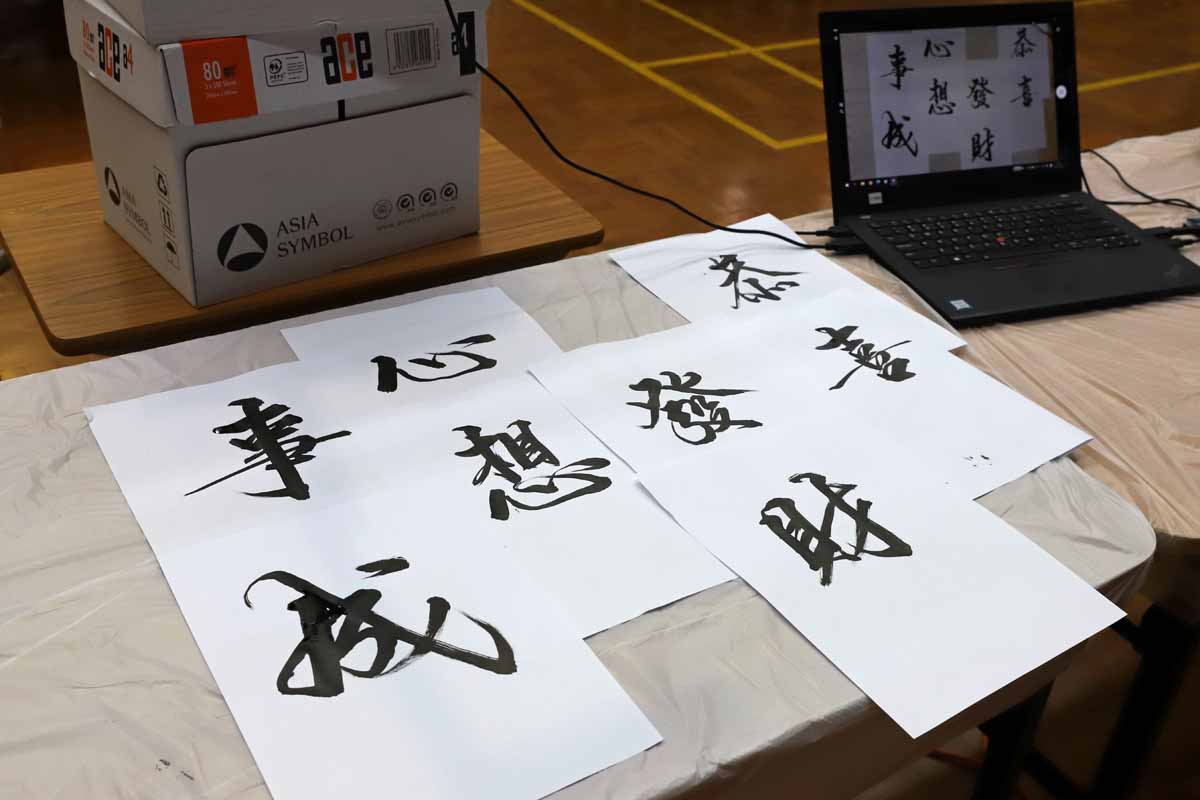 恭喜
發財
心想
事成
80
ace
a4
80
ace
a4
ASIA
SYMBOL
www.asiasymbol.com
ASIA
SYMBOL
恭喜
發財
心想
事成